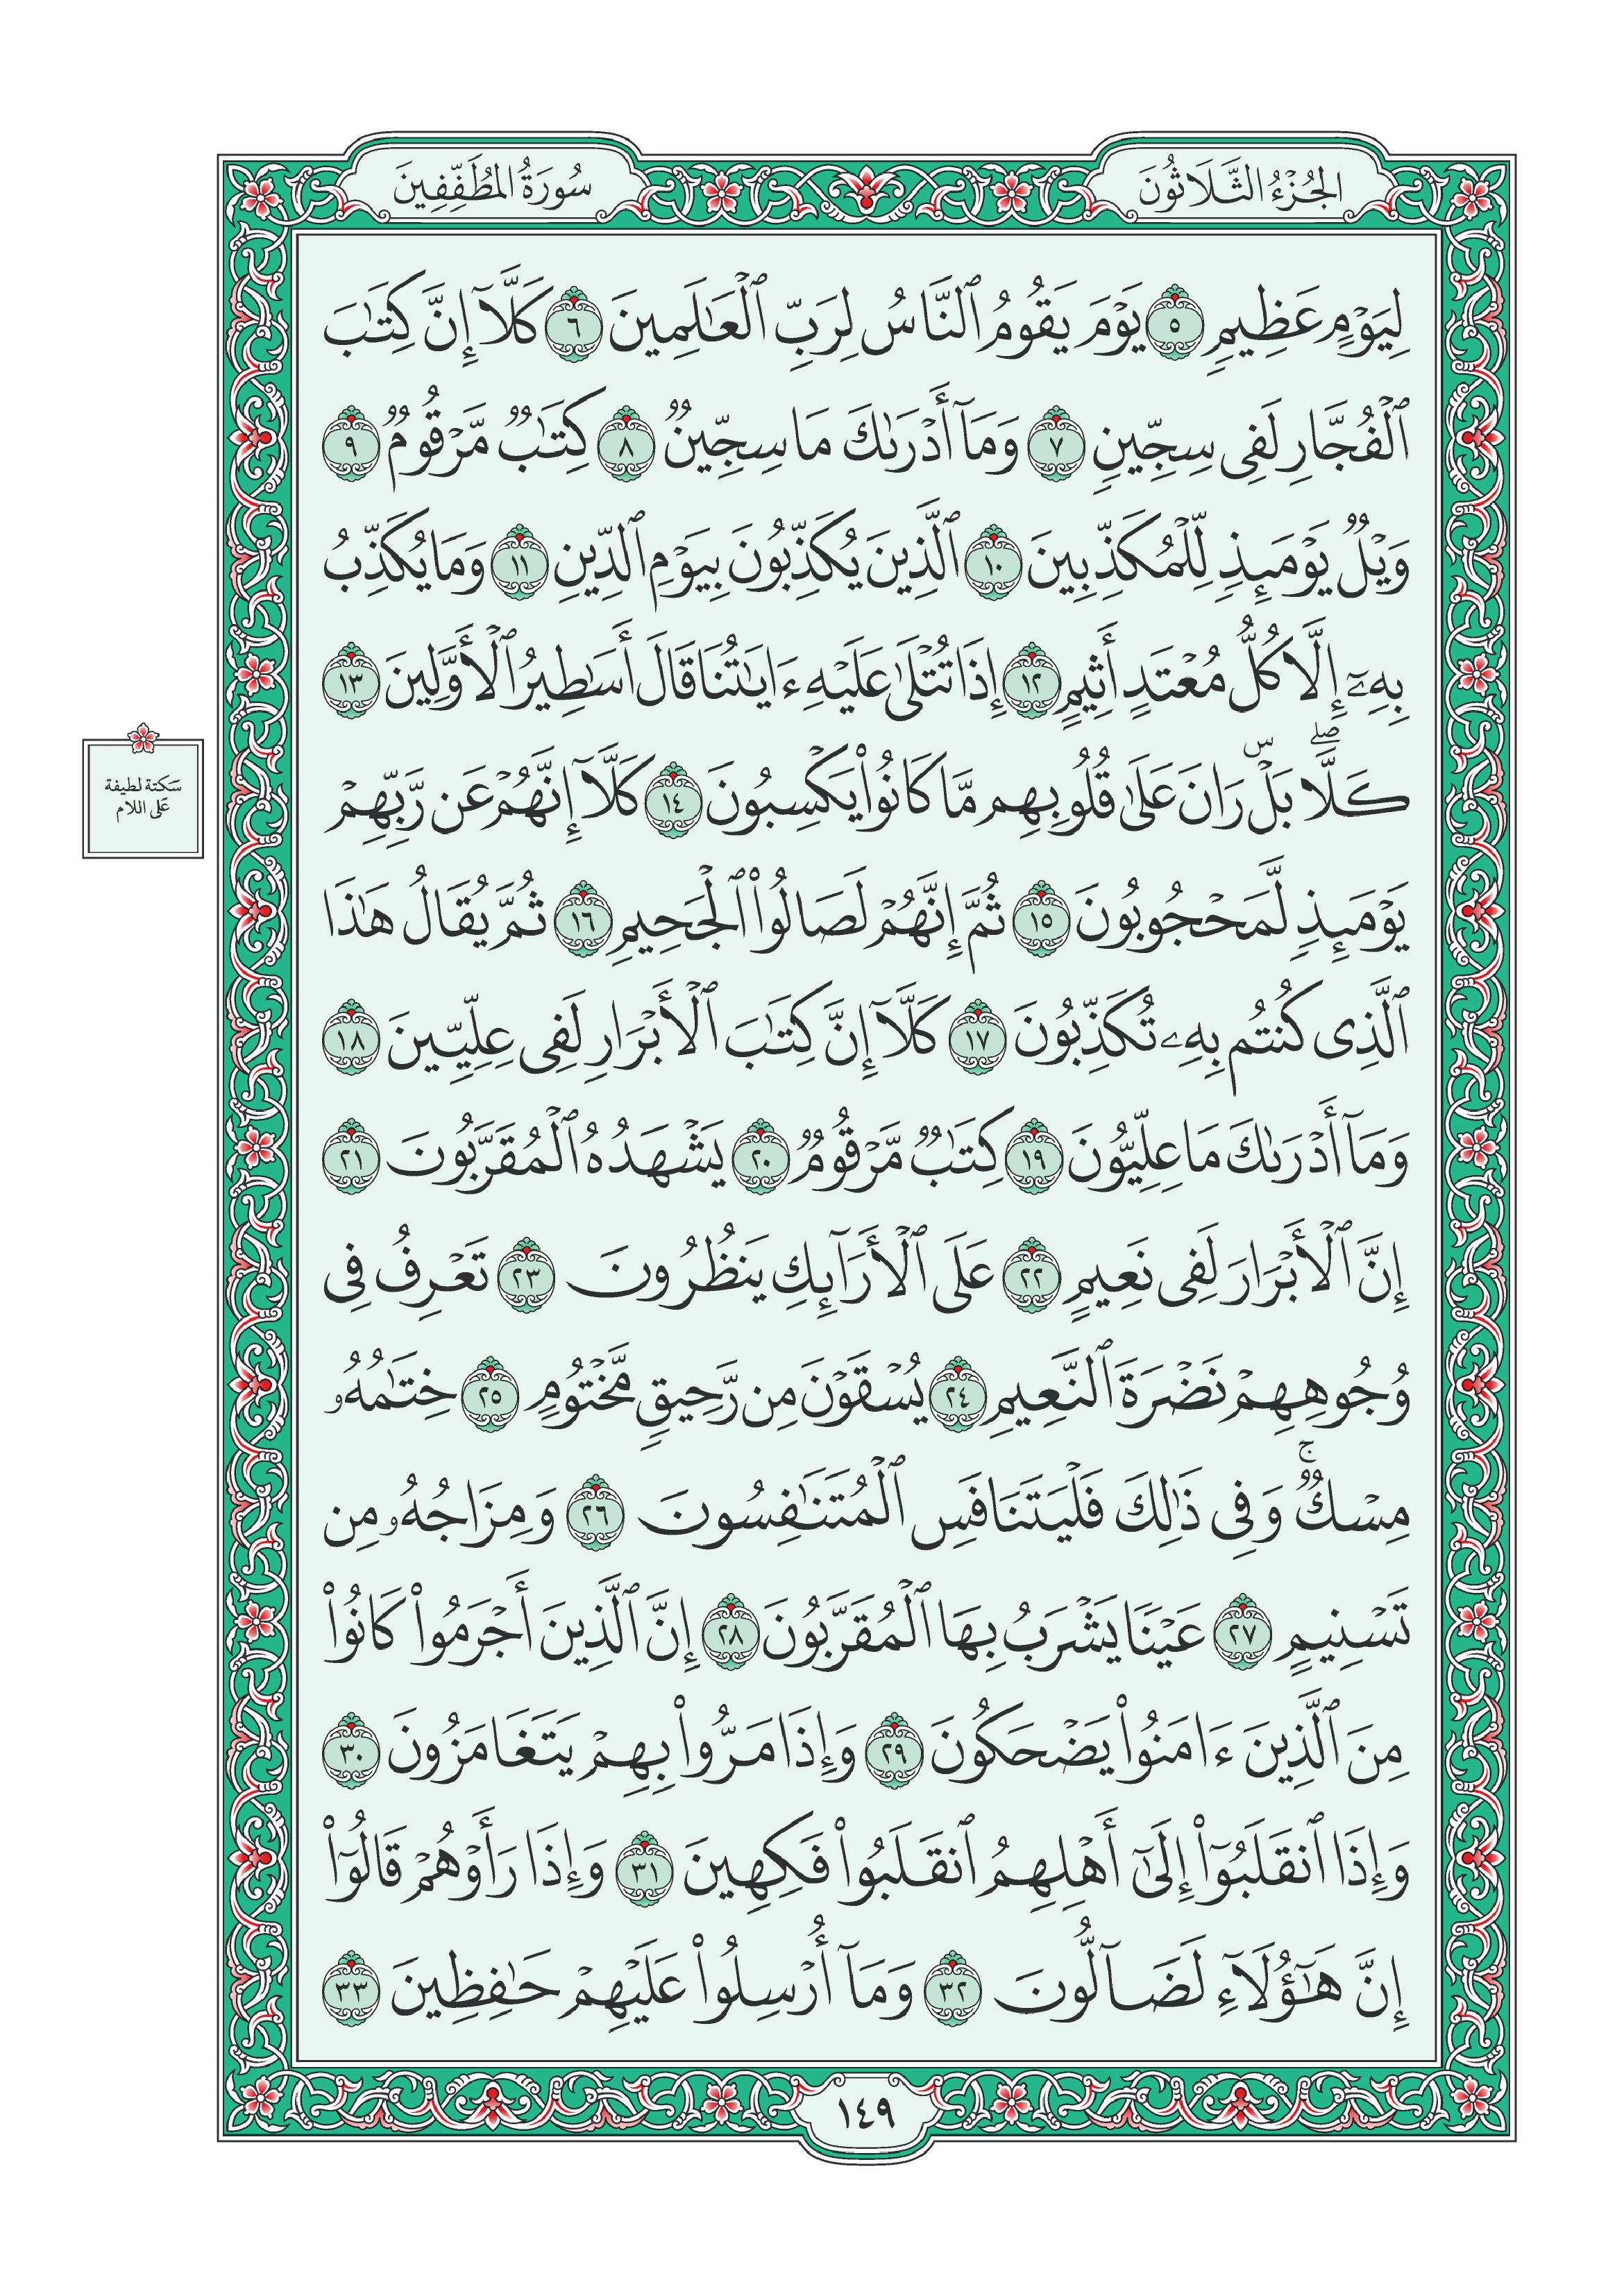 الجُزْءُ الثَّلَاثُونَ
سُورَةُ المُطَفِّفِينَ
لِيَوْمٍ عَظِيمٍ ٥ يَوْمَ يَقُومُ ٱلنَّاسُ لِرَبِّ ٱلْعَٰلَمِينَ ٦ كَلَّآ إِنَّ كِتَٰبَ
ٱلْفُجَّارِ لَفِى سِجِّينٍ ٧ وَمَآ أَدْرَىٰكَ مَا سِجِّينٌ ٨ كِتَٰبٌ مَّرْقُومٌ ٩
وَيْلٌ يَوْمَئِذٍ لِّلْمُكَذِّبِينَ ١٠ ٱلَّذِينَ يُكَذِّبُونَ بِيَوْمِ ٱلدِّينِ ١١ وَمَا يُكَذِّبُ
بِهِۦٓ إِلَّا كُلُّ مُعْتَدٍ أَثِيمٍ ١٢ إِذَا تُتْلَىٰ عَلَيْهِ ءَايَٰتُنَا قَالَ أَسَٰطِيرُ ٱلْأَوَّلِينَ ١٣
كَلَّاۖ بَلْۜ رَانَ عَلَىٰ قُلُوبِهِم مَّا كَانُوا۟ يَكْسِبُونَ ١٤ كَلَّآ إِنَّهُمْ عَن رَّبِّهِمْ
سَكتة لطيفة
عَلى اللام
يَوْمَئِذٍ لَّمَحْجُوبُونَ ١٥ ثُمَّ إِنَّهُمْ لَصَالُوا۟ ٱلْجَحِيمِ ١٦ ثُمَّ يُقَالُ هَٰذَا
ٱلَّذِى كُنتُم بِهِۦ تُكَذِّبُونَ ١٧ كَلَّآ إِنَّ كِتَٰبَ ٱلْأَبْرَارِ لَفِى عِلِّيِّينَ ١٨
وَمَآ أَدْرَىٰكَ مَا عِلِّيُّونَ ١٩ كِتَٰبٌ مَّرْقُومٌ ٢٠ يَشْهَدُهُ ٱلْمُقَرَّبُونَ ٢١
إِنَّ ٱلْأَبْرَارَ لَفِى نَعِيمٍ ٢٢ عَلَى ٱلْأَرَآئِكِ يَنظُرُونَ ٢٣ تَعْرِفُ فِى
وُجُوهِهِمْ نَضْرَةَ ٱلنَّعِيمِ ٢٤ يُسْقَوْنَ مِن رَّحِيقٍ مَّخْتُومٍ ٢٥ خِتَٰمُهُۥ
مِسْكٌۚ وَفِى ذَٰلِكَ فَلْيَتَنَافَسِ ٱلْمُتَنَٰفِسُونَ ٢٦ وَمِزَاجُهُۥ مِن
تَسْنِيمٍ ٢٧ عَيْنًا يَشْرَبُ بِهَا ٱلْمُقَرَّبُونَ ٢٨ إِنَّ ٱلَّذِينَ أَجْرَمُوا۟ كَانُوا۟
مِنَ ٱلَّذِينَ ءَامَنُوا۟ يَضْحَكُونَ ٢٩ وَإِذَا مَرُّوا۟ بِهِمْ يَتَغَامَزُونَ ٣٠
وَإِذَا ٱنقَلَبُوٓا۟ إِلَىٰٓ أَهْلِهِمُ ٱنقَلَبُوا۟ فَكِهِينَ ٣١ وَإِذَا رَأَوْهُمْ قَالُوٓا۟
إِنَّ هَٰٓؤُلَآءِ لَضَآلُّونَ ٣٢ وَمَآ أُرْسِلُوا۟ عَلَيْهِمْ حَٰفِظِينَ ٣٣
١٤٩